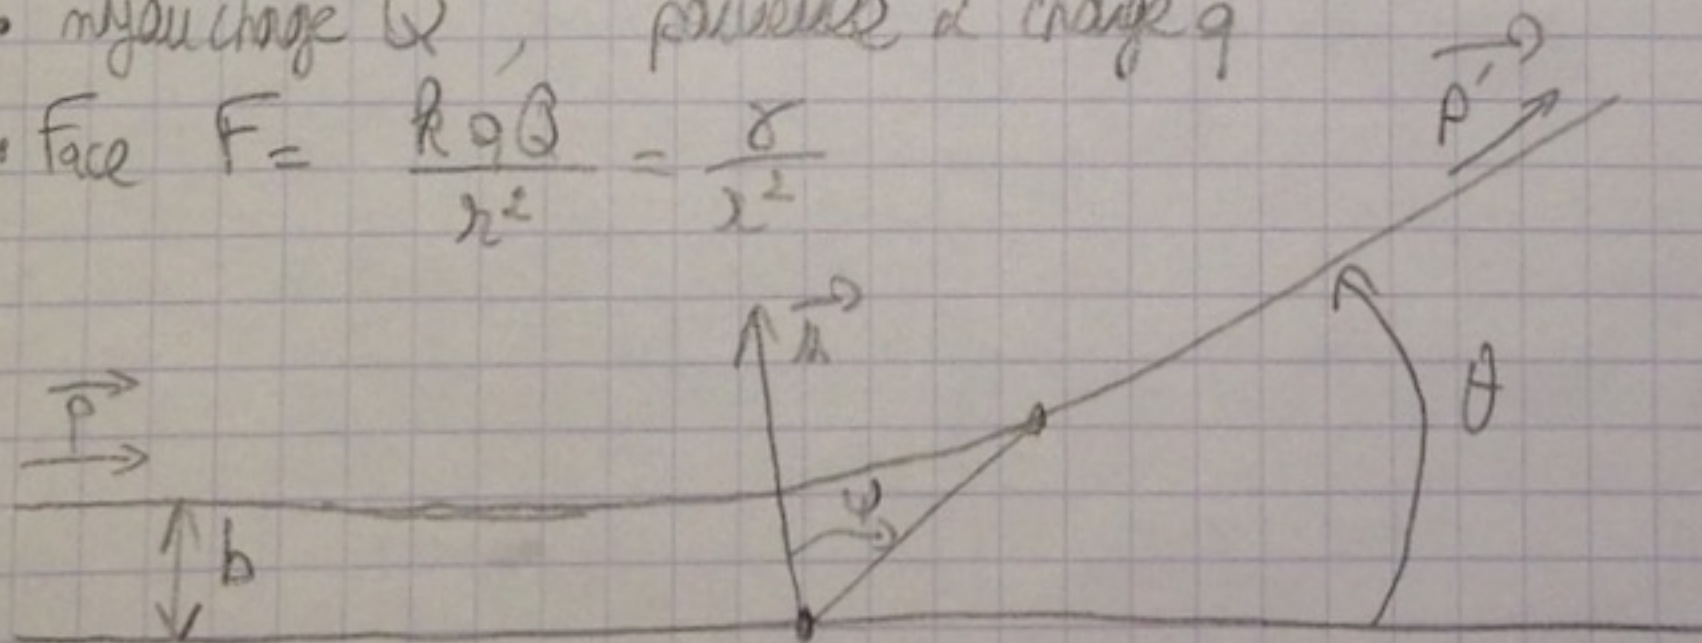 • noyau charge Q, particule α charge q
• Force F = kqQ/r² = γ/r²
p⃗'
u⃗
p⃗
θ
ψ
b